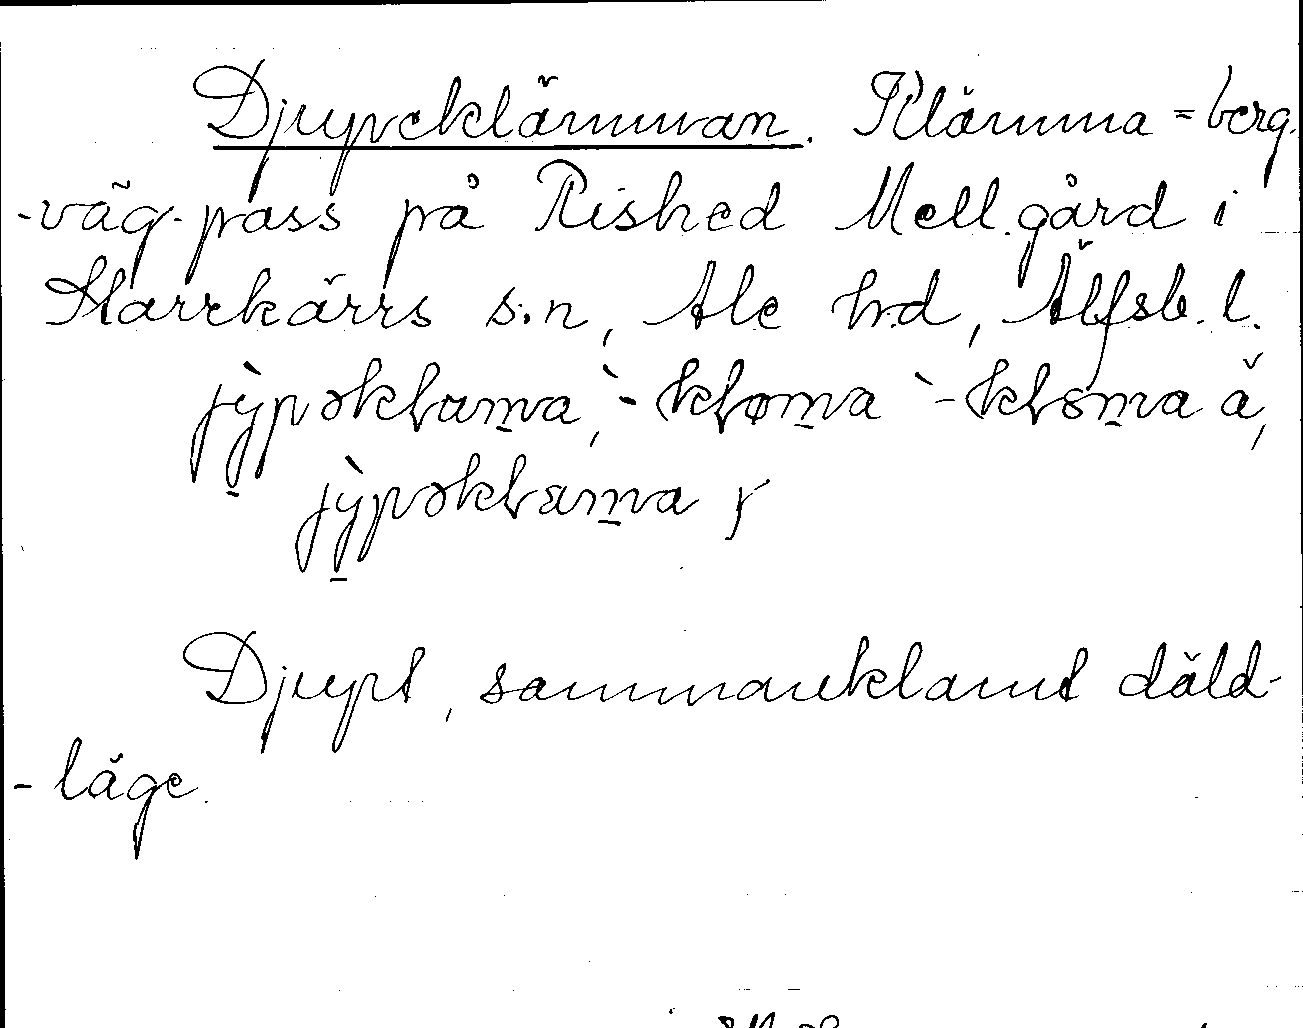 Djupeklämman. Klämma = berg-
-väg-pass på Rished Mell.gård i
Starrkärrs s:n, Ale h:d, Älfsb. l.
jỳpəklama, `-kløma `-klɵma ä,
jỳpəklama
Djupt, sammanklämt däld-
-läge.